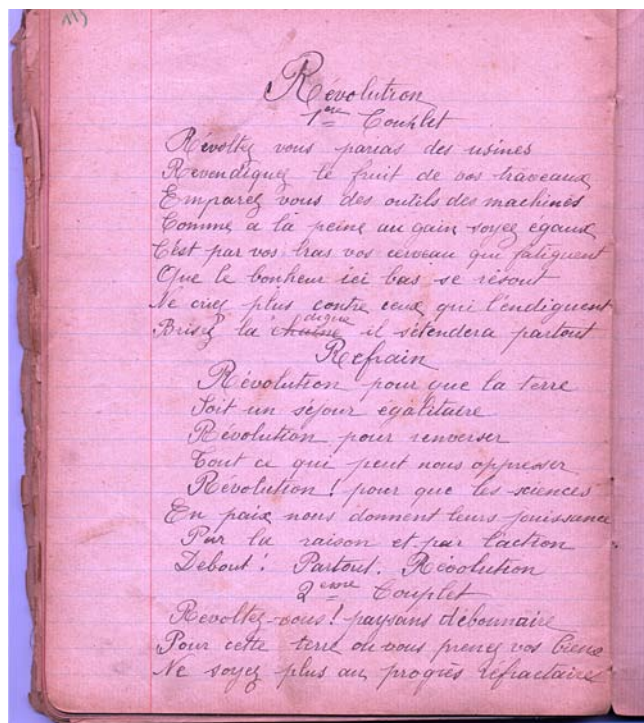 115
Révolution
1ere Couplet
Révoltez vous parias des usines
Revendiquez le fruit de vos traveaux
Emparez vous des outils des machines
Comme a la peine au gain soyez égaux
C'est par vos bras vos cerveau qui fatiguent
Que le bonheur ici bas se résout
Ne criez plus contre ceux qui l'endiguent
digue
Brisez la chaîne il s'étendera partout
Refrain
Révolution pour que la terre
Soit un séjour égalitaire
Révolution pour renverser
Tout ce qui peut nous oppresser
Révolution ! pour que les sciences
En paix nous donnent leurs jouissance
Par la raison et par l'action
Debout ! Partout ! Révolution
2eme Couplet
Revoltez-vous ! paysans débonnaire
Pour cette terre ou vous prenez vos biens
Ne soyez plus au progrès réfractaires